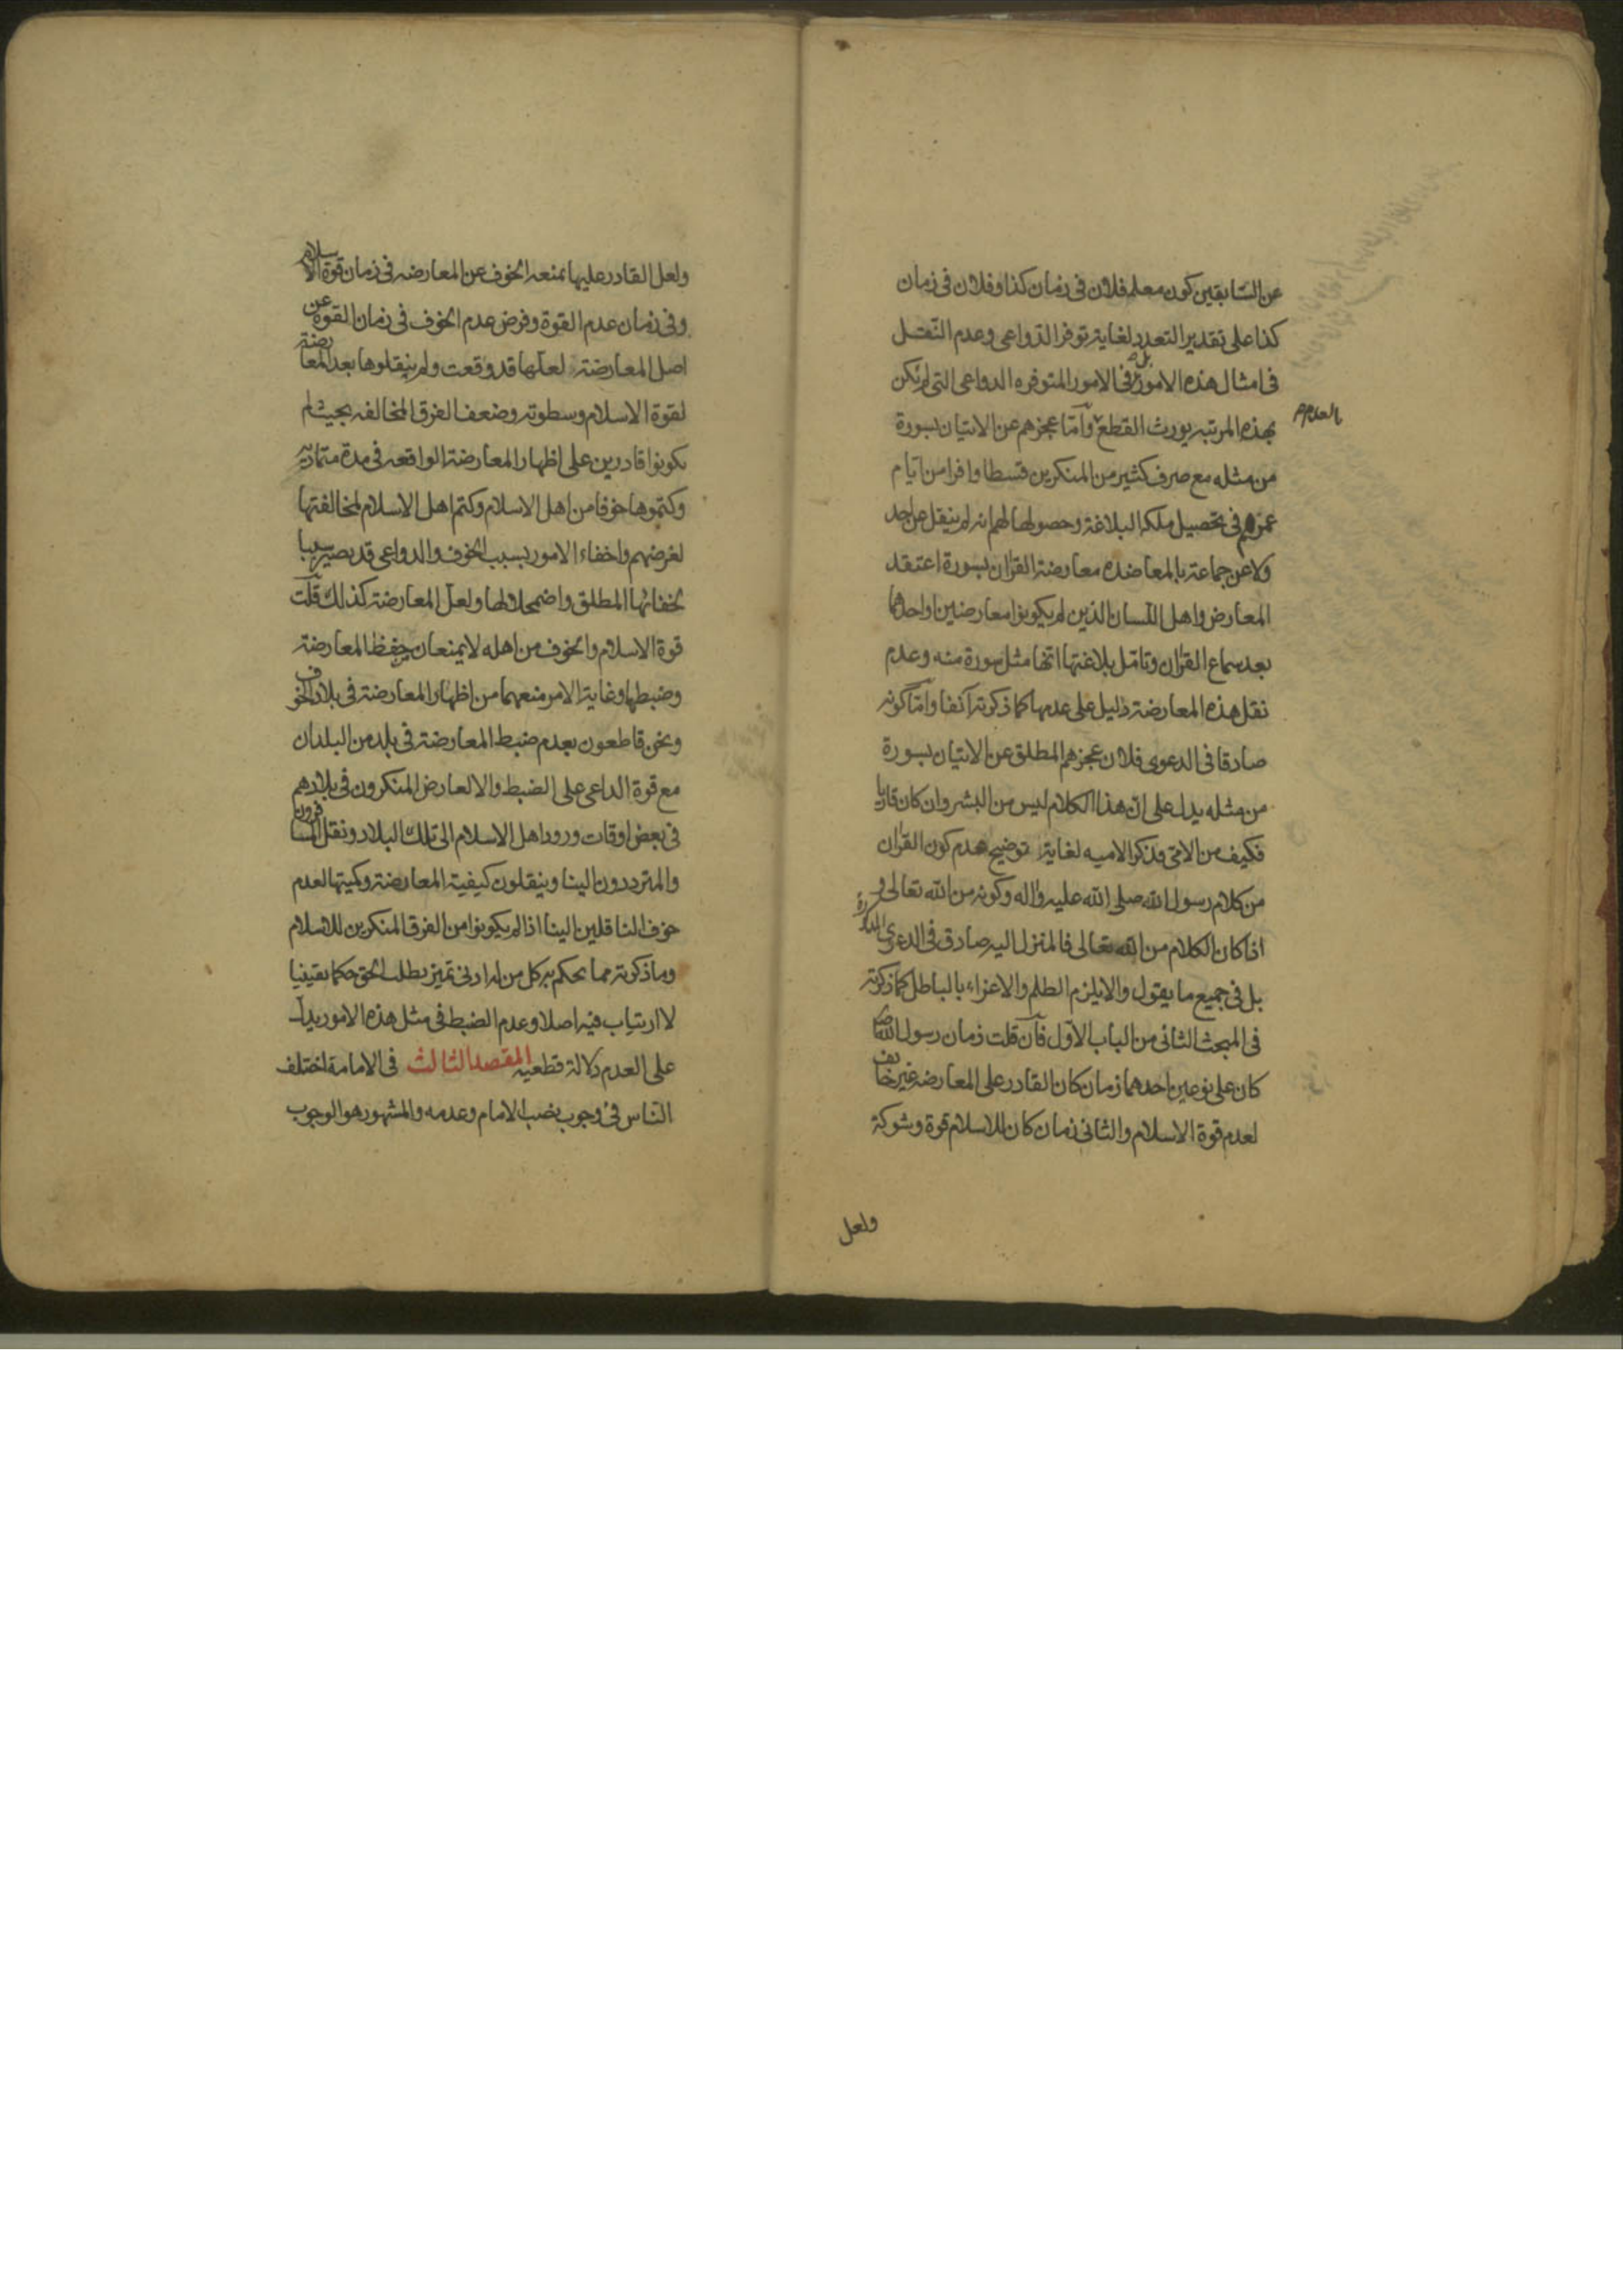 عن السّابقين كون معلم فلان فى زمان كذا وفلان فى زمان
كذا على تقدير التعدد لغاية توفر الدّواعى وعدم النّقل
فى امثال هذه الامور بل فى الامور المتوفره الدواعى التى لم تكن
بهذه المرتبه يورث القطع وامّا عجزهم عن الاتيان بسورة
بالعدم
من مثله مع صرف كثير من المنكرين قسطا وافرا من ايّام
عمرهم فى تحصيل ملكه البلاغة وحصولها لهم انه لم ينقل عن احد
ولا عن جماعة بالمعاضده معارضة القران بسورة اعتقد
المعارض واهل اللّسان الذين لم يكونوا معارضين واحدها
بعد سماع القران وتامّل بلاغتها انّها مثل سورة منه وعدم
نقل هذه المعارضة دليل على عدمها كما ذكرته آنفا وامّا كونه
صادقا فى الدعوى فلان عجزهم المطلق عن الاتيان بسورة
من مثله يدل على انّ هذا الكلام ليس من البشر وان كان قاريا
فكيف من الامّى وذكر الاميه لغاية توضيح عدم كون القران
من كلام رسول الله صلى الله عليه واله وكونه من الله تعالى و
اذا كان الكلام من الله تعالى فالمنزل اليه صادق فى الدعوى
بل فى جميع ما يقول والا يلزم الظلم والاغراء بالباطل كما ذكرته
فى المبحث الثانى من الباب الاوّل فان قلت زمان رسول الله ص
كان على نوعين احدهما زمان كان القادر على المعارضه غير خايف
لعدم قوة الاسلام والثانى زمان كان للاسلام قوة وشوكة
ولعل
ولعل القادر عليها يمنعه الخوف عن المعارضه فى زمان قوة الاسلام
وفى زمان عدم القوة وفرض عدم الخوف فى زمان القوة عن
اصل المعارضة لعلّها قد وقعت ولم ينقلوها بعد المعارضة
لقوة الاسلام وسطوته وضعف الفرق المخالفه بحيث لم
يكونوا قادرين على اظهار المعارضة الواقعه فى مدة متمادية
وكتموها خوفا من اهل الاسلام وكتم اهل الاسلام لمخالفتها
لغرضهم واخفاء الامور بسبب الخوف والدواعى قد يصير سببا
لخفائها المطلق واضمحلالها ولعلّ المعارضة كذلك قلت
قوة الاسلام والخوف من اهله لا يمنعان حفظ المعارضة
وضبطها وغاية الامر منعهما من اظهار المعارضة فى بلاد الخوف
ونحن قاطعون بعدم ضبط المعارضة فى بلد من البلدان
مع قوة الداعى على الضبط والا لعارض المنكرون فى بلادهم
فى بعض اوقات ورود اهل الاسلام الى تلك البلاد ونقل المسافرون
والمترددون الينا وينقلون كيفية المعارضة وكميتها لعدم
خوف الناقلين الينا اذا لم يكونوا من الفرق المنكرين للاسلام
وما ذكرته مما يحكم به كل من له ادنى تميز يطلب الحق حكما يقينيا
لا ارتياب فيه اصلا وعدم الضبط فى مثل هذه الامور يدلّ
على العدم دلالة قطعيه المقصد الثالث فى الامامة اختلف
النّاس فى وجوب نصب الامام وعدمه والمشهور هو الوجوب